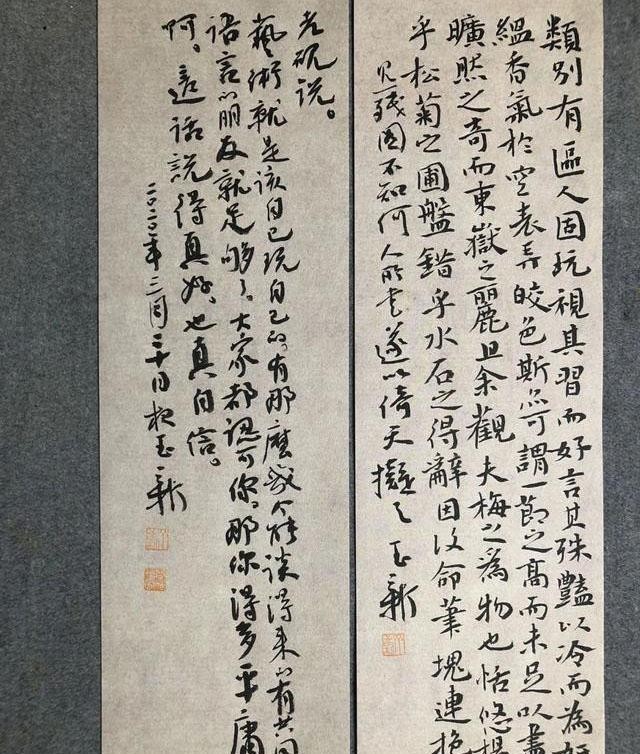 類別有區人固玩視其習而好言其殊豔以冷而為
縕香氣於空表弄皎色斯亦可謂一節之高而未足以盡
曠然之奇而東嶽之麗且余觀夫梅之為物也恬悠
乎松菊之圃盤錯乎水石之得辭因設命筆塊連
見殘圖不知何人所書遂以倚天擬之 玉新
老硯说。
藝術就是该自己玩自己的。有那麼几个能谈得来的有共同
语言的朋友就足够了。大家都認可你,那你得多平庸
啊。這话說得真好,也真自信。
二〇二〇年三月三十日 玉新